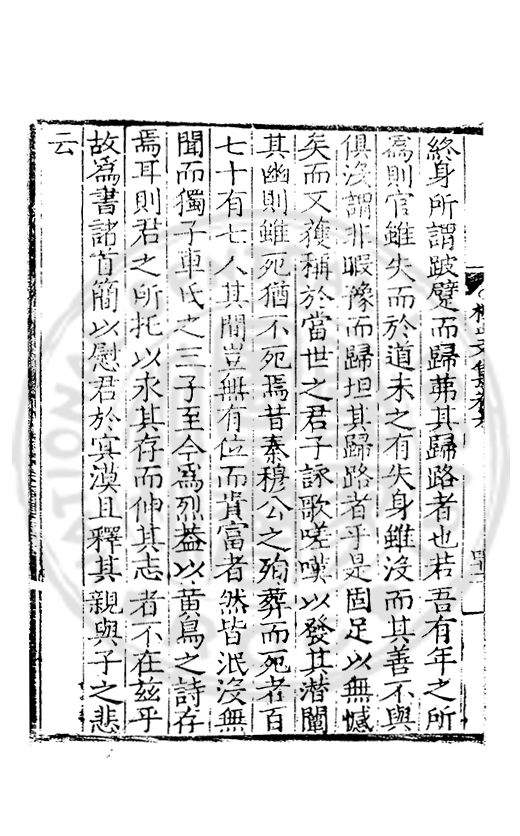 終身所謂跛躄而歸茀其歸路者也若吾有年之所
爲則官雖失而於道未之有失身雖沒而其善不與
俱沒謂非暇豫而歸坦其歸路者乎是固足以無憾
矣而又獲稱於當世之君子詠歌嗟嘆以發其潛闡
其幽則雖死猶不死焉昔秦穆公之殉葬而死者百
七十有七人其間豈無有位而貴富者然皆泯沒無
聞而獨子車氏之三子至今爲烈蓋以黃鳥之詩存
焉耳則君之所托以永其存而伸其志者不在茲乎
故爲書諸首簡以慰君於冥漠且釋其親與子之悲
云